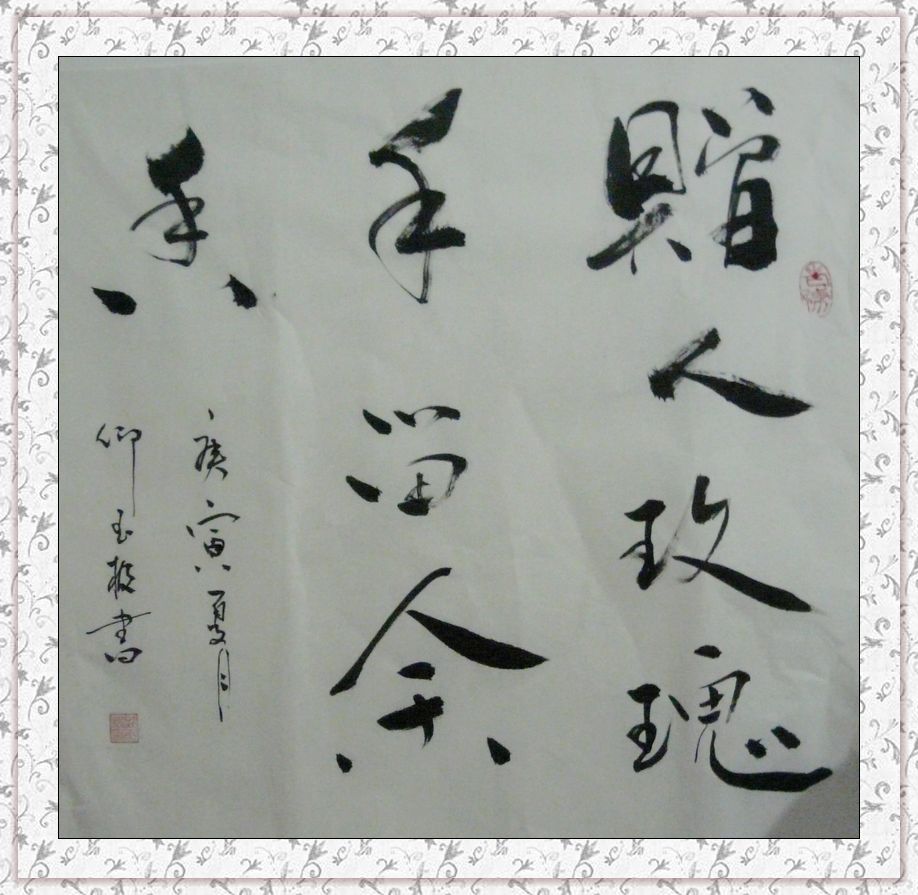 贈人玫瑰
手留余
香
庚寅夏月
仰玉板書